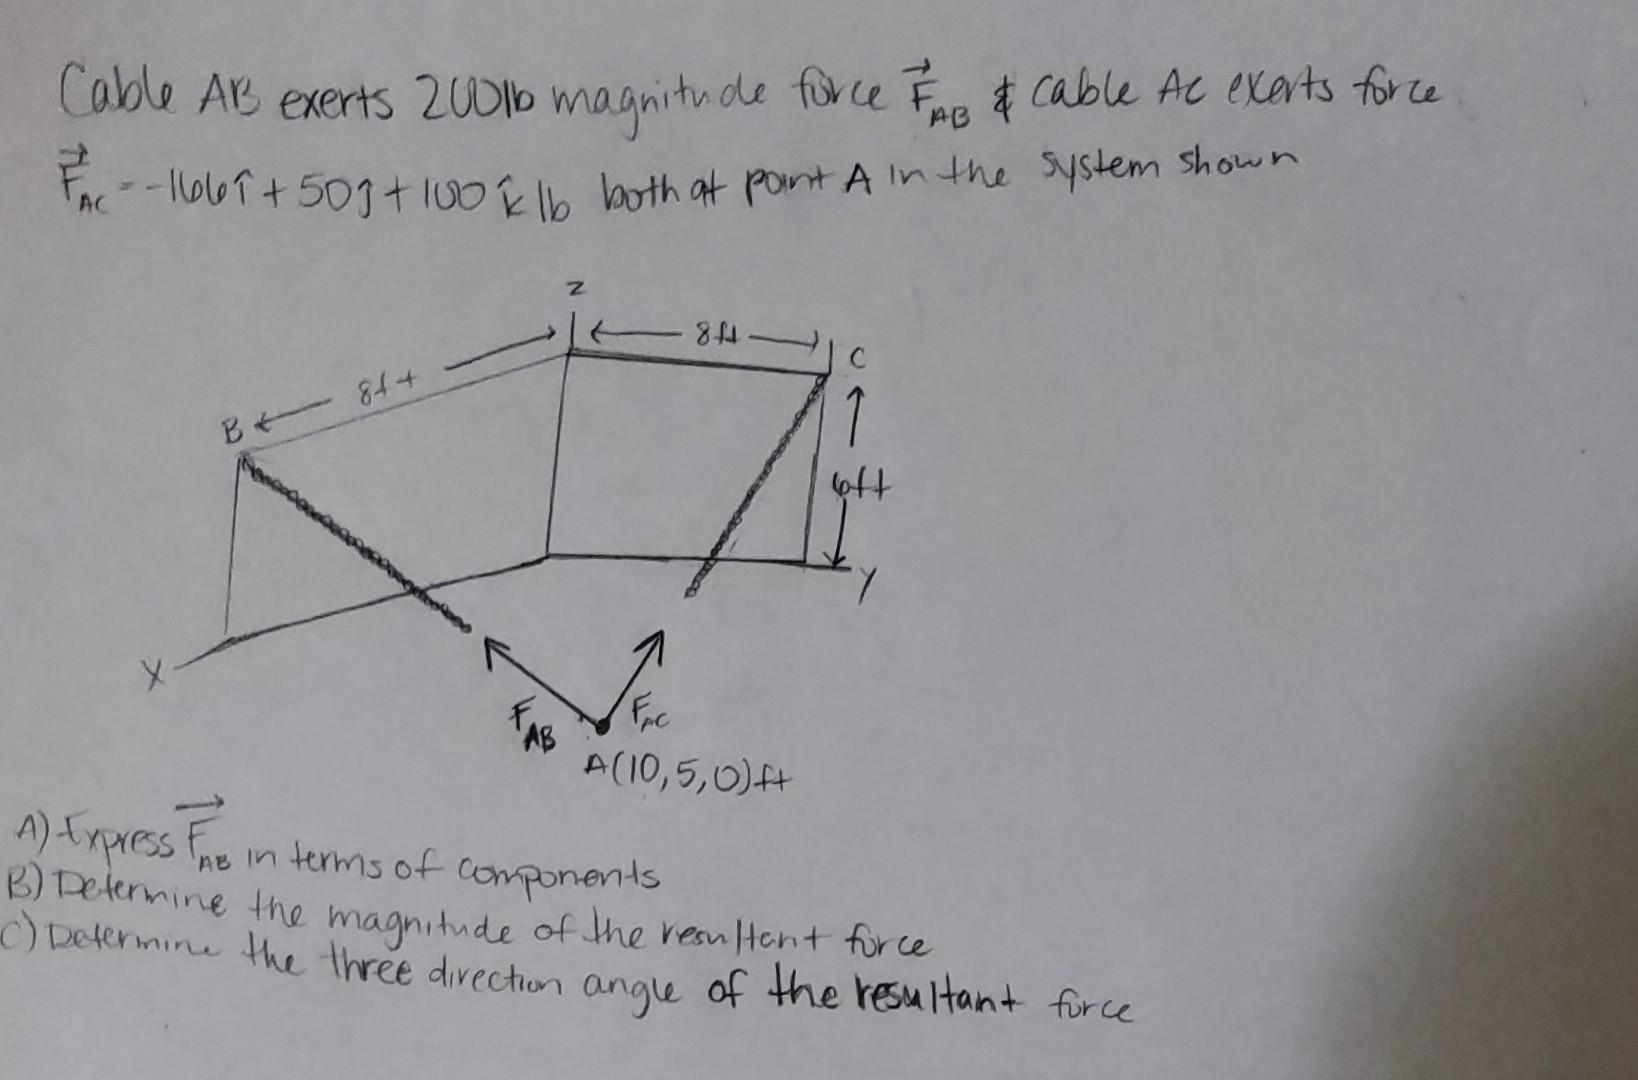 Cable AB exerts 200lb magnitude force F⃗AB & cable AC exerts force
F⃗AC = -166î + 50ĵ + 100k̂ lb both at point A in the system shown
Z
8ft
C
8ft
B
6ft
Y
X
FAB
FAC
A(10,5,0)ft
A) Express F⃗AB in terms of components
B) Determine the magnitude of the resultant force
C) Determine the three direction angle of the resultant force